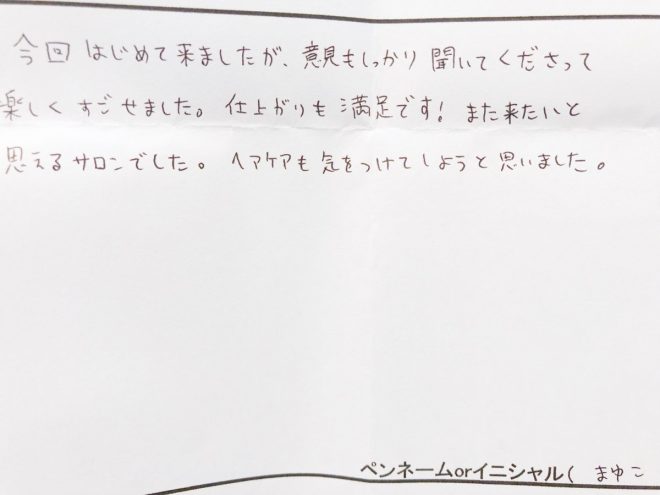 今回 はじめて来ましたが、意見もしっかり 聞いてくださって
楽しく すごせました。仕上がりも 満足です! また来たいと
思えるサロンでした。ヘアケアも 気をつけてしようと思いました。
ペンネームorイニシャル( まゆこ